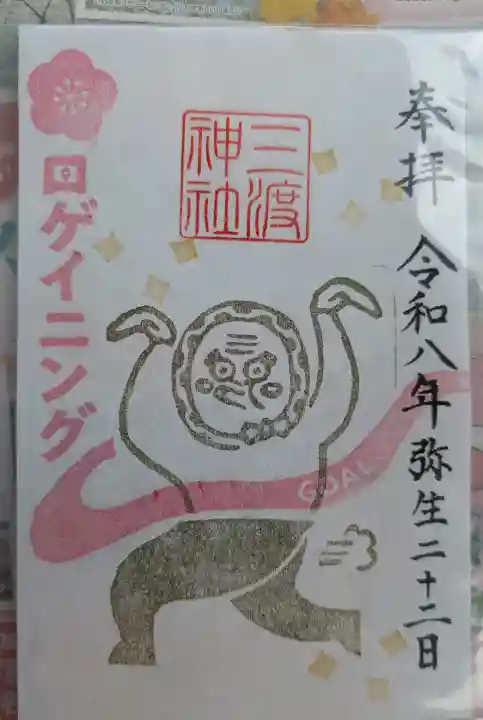 奉拝 令和八年弥生二十二日
三渡
神社
ロゲイニング
GOAL